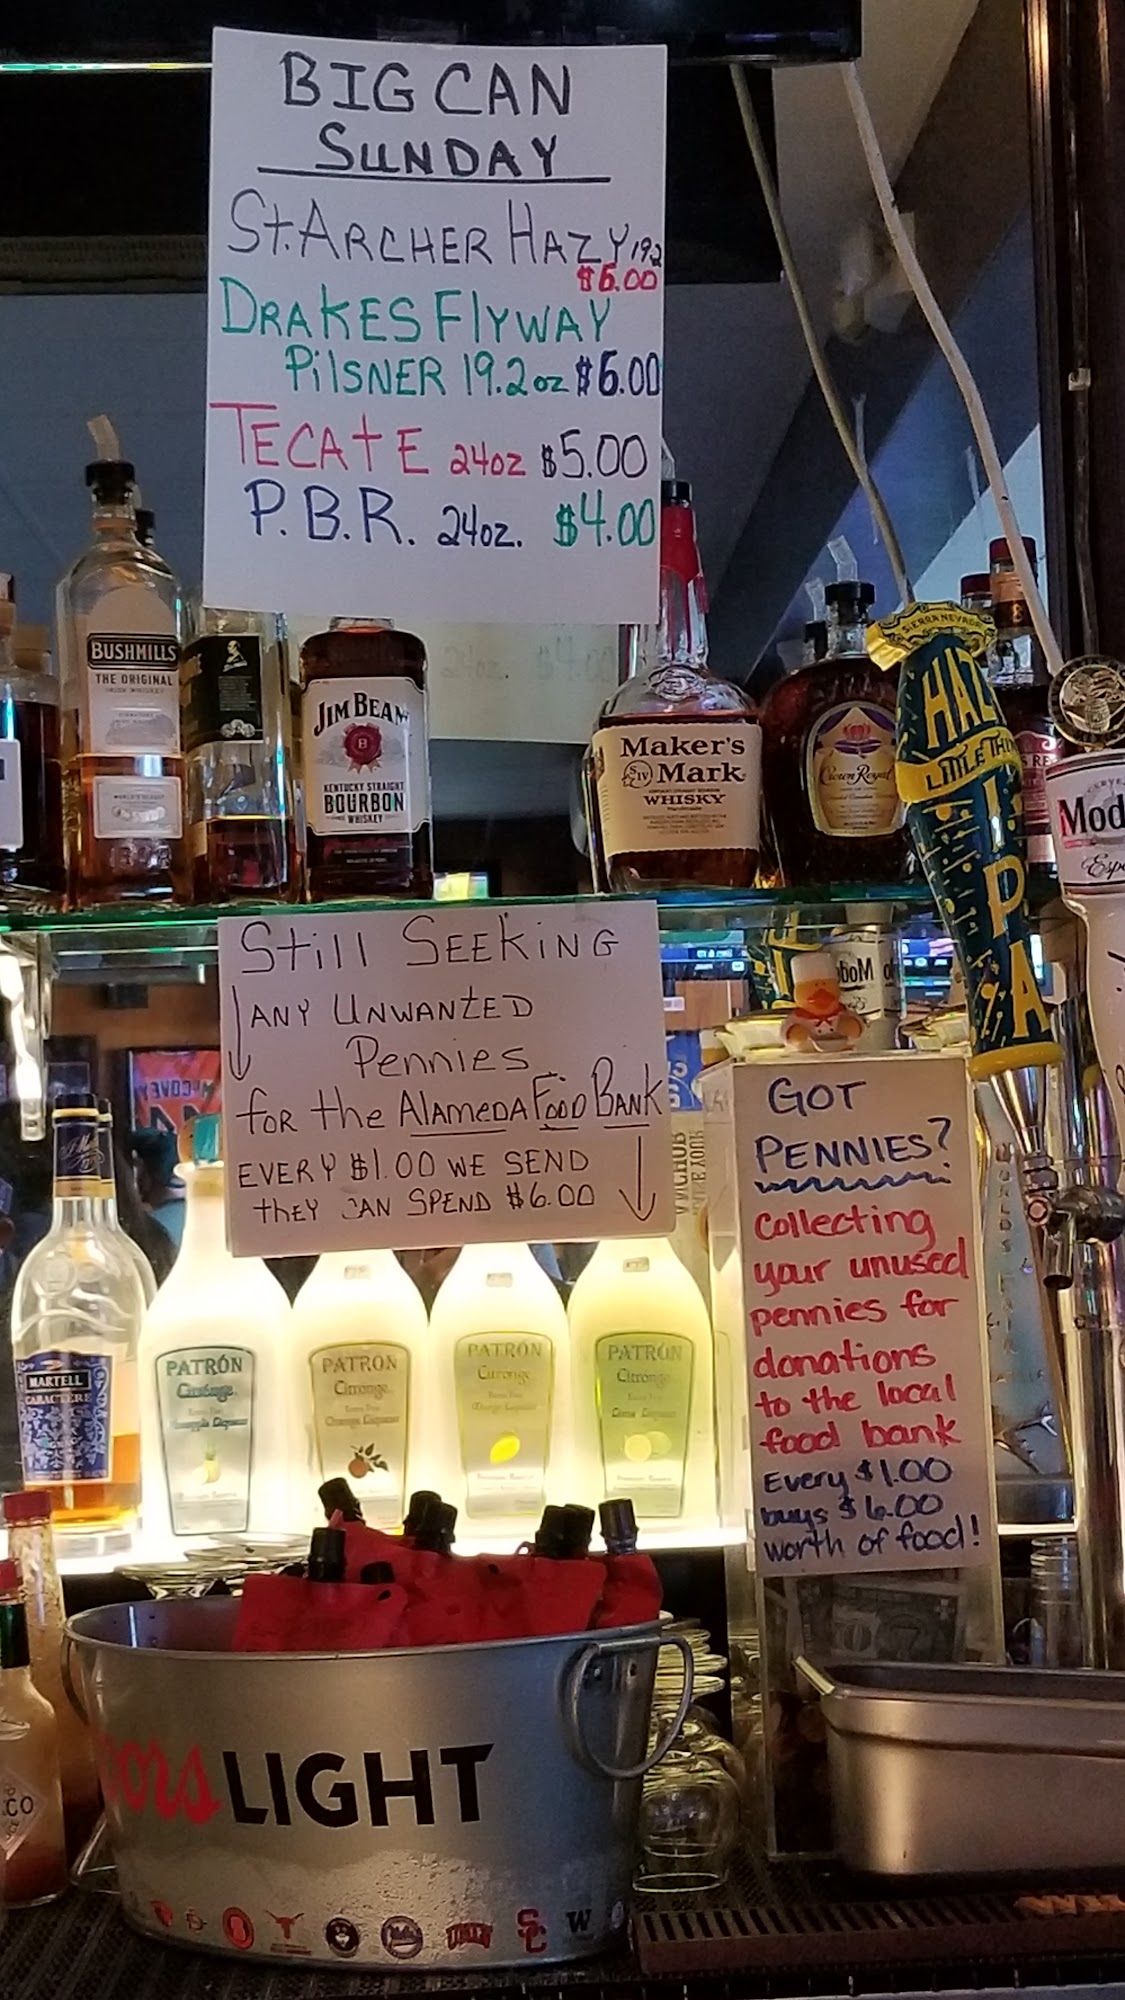 BIG CAN
SUNDAY
St. ARCHER HAZY 19.2
$6.00
DRAKES FlYWAY
PilSNER 19.2 oz $6.00
TECAtE 24oz $5.00
P.B.R. 24oz. $4.00
BUSHMILLS
THE ORIGINAL
IRISH WHISKEY
JIM BEAM
B
KENTUCKY STRAIGHT
BOURBON
WHISKEY
Maker's
SIV Mark
WHISKY
Crown Royal
SIERRA NEVADA
HAZ
LITTLE THIN
IPA
Mod
Espe
Still SEEkiNG
ANY UNWANtED
Pennies
for the ALAMEDA Food BANK
EVERY $1.00 WE SEND
tHEY CAN SPEND $6.00
GOT
PENNIES?
collecting
your unused
pennies for
donations
to the local
food bank
Every $1.00
buys $6.00
worth of food!
MARTELL
CARACTÈRE
PATRÓN
Citrónge
Pineapple Liqueur
PATRÓN
Citrónge
Orange Liqueur
PATRÓN
Citrónge
Mango Liqueur
PATRÓN
Citrónge
Lime Liqueur
Coors LIGHT
CO
SC
W